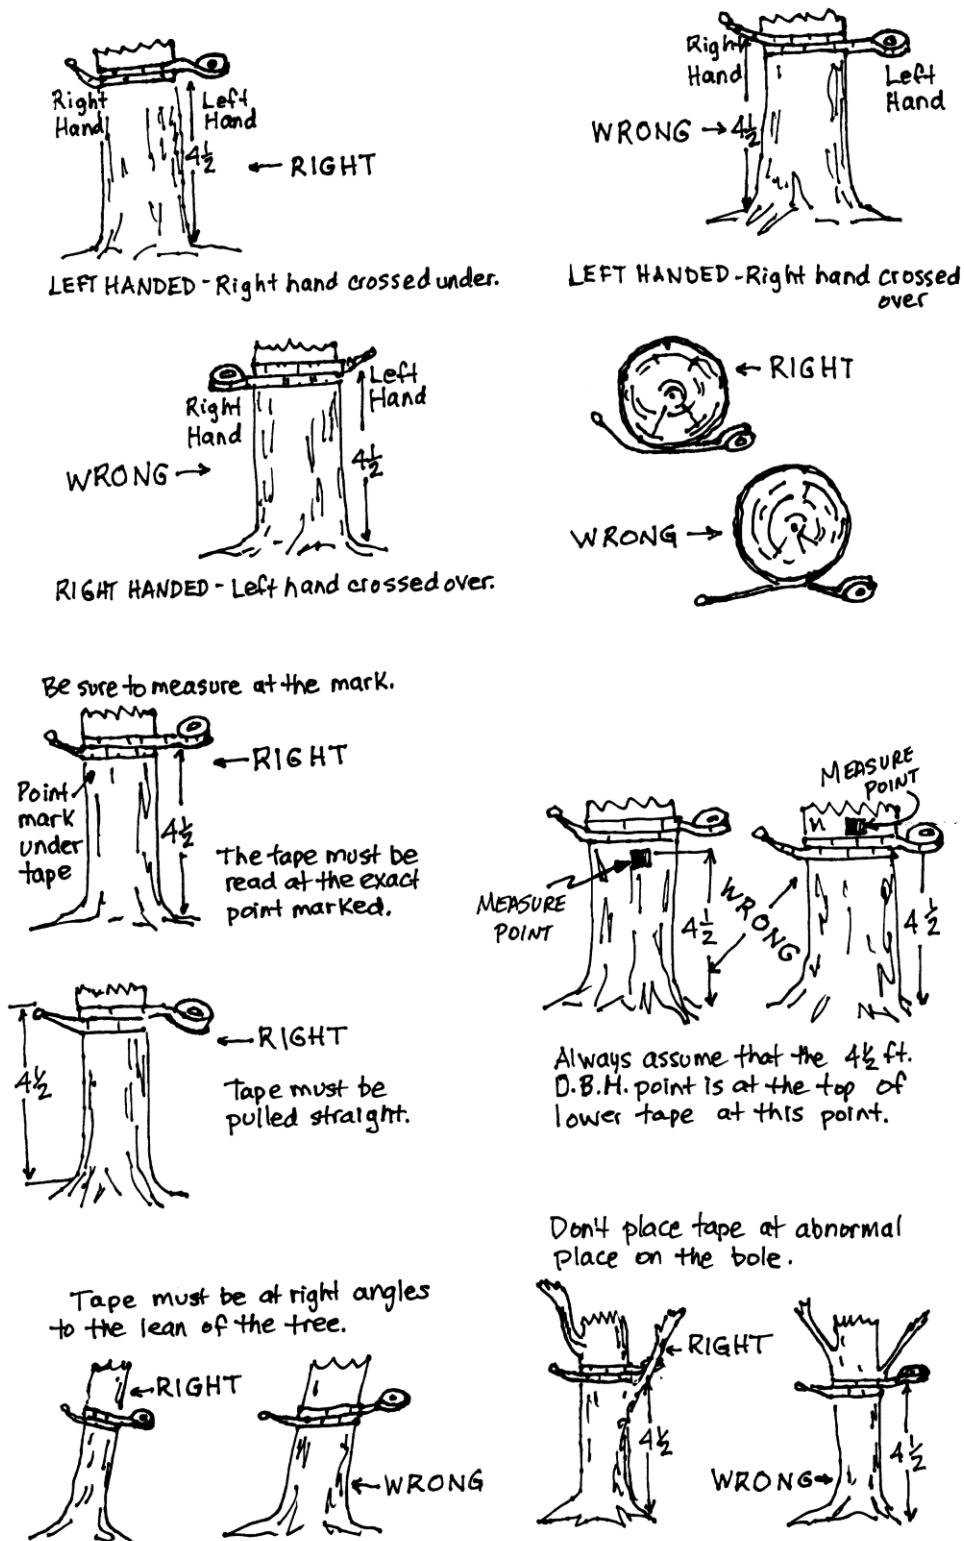 Right
Hand
Left
Hand
4½
← RIGHT
LEFT HANDED - Right hand crossed under.
Right
Hand
Left
Hand
WRONG → 4½
LEFT HANDED - Right hand crossed
over
Right
Hand
Left
Hand
WRONG →
4½
RIGHT HANDED - Left hand crossed over.
← RIGHT
WRONG →
Be sure to measure at the mark.
← RIGHT
Point
mark
under
tape
4½
The tape must be
read at the exact
point marked.
MEASURE
POINT
4½
WRONG
MEASURE
POINT
4½
Always assume that the 4½ ft.
D.B.H. point is at the top of
lower tape at this point.
4½
← RIGHT
Tape must be
pulled straight.
Tape must be at right angles
to the lean of the tree.
← RIGHT
← WRONG
Don't place tape at abnormal
place on the bole.
← RIGHT
4½
WRONG →
4½